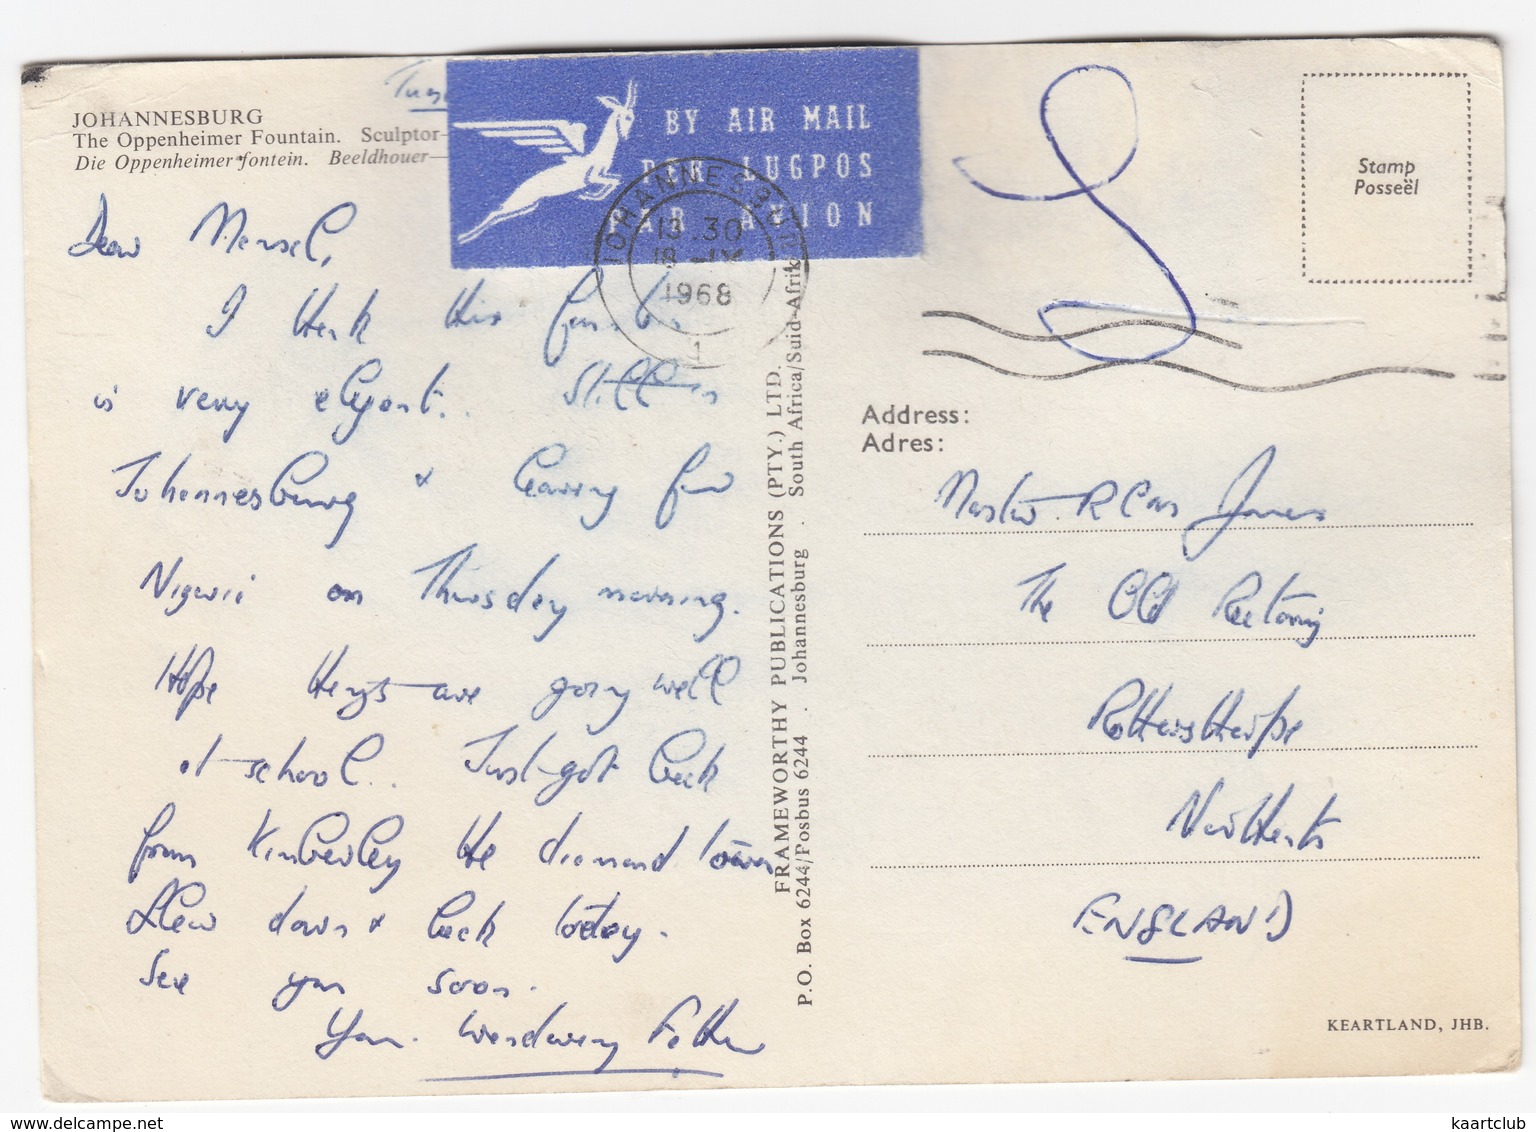 JOHANNESBURG
The Oppenheimer Fountain. Sculptor-
Die Oppenheimer fontein. Beeldhouer-
BY AIR MAIL
PER LUGPOS
PAR AVION
JOHANNESBURG
13.30
18 -IX
1968
1
Stamp
Posseël
Dear
I think this fountain
is very elegant. Still in
Johannesburg & leaving for
Nigeria on Thursday morning.
Hope things are going well
at school. Just got back
from Kimberley the diamond town
Flew down & back today.
See you soon.
Your wandering Father
FRAMEWORTHY PUBLICATIONS (PTY.) LTD.
P.O. Box 6244/Posbus 6244 . Johannesburg . South Africa/Suid-Afrika
Address:
Adres:
Master R Jones
The Old Rectory
Rothersthorpe
Northants
ENGLAND
KEARTLAND, JHB.
kaartclub